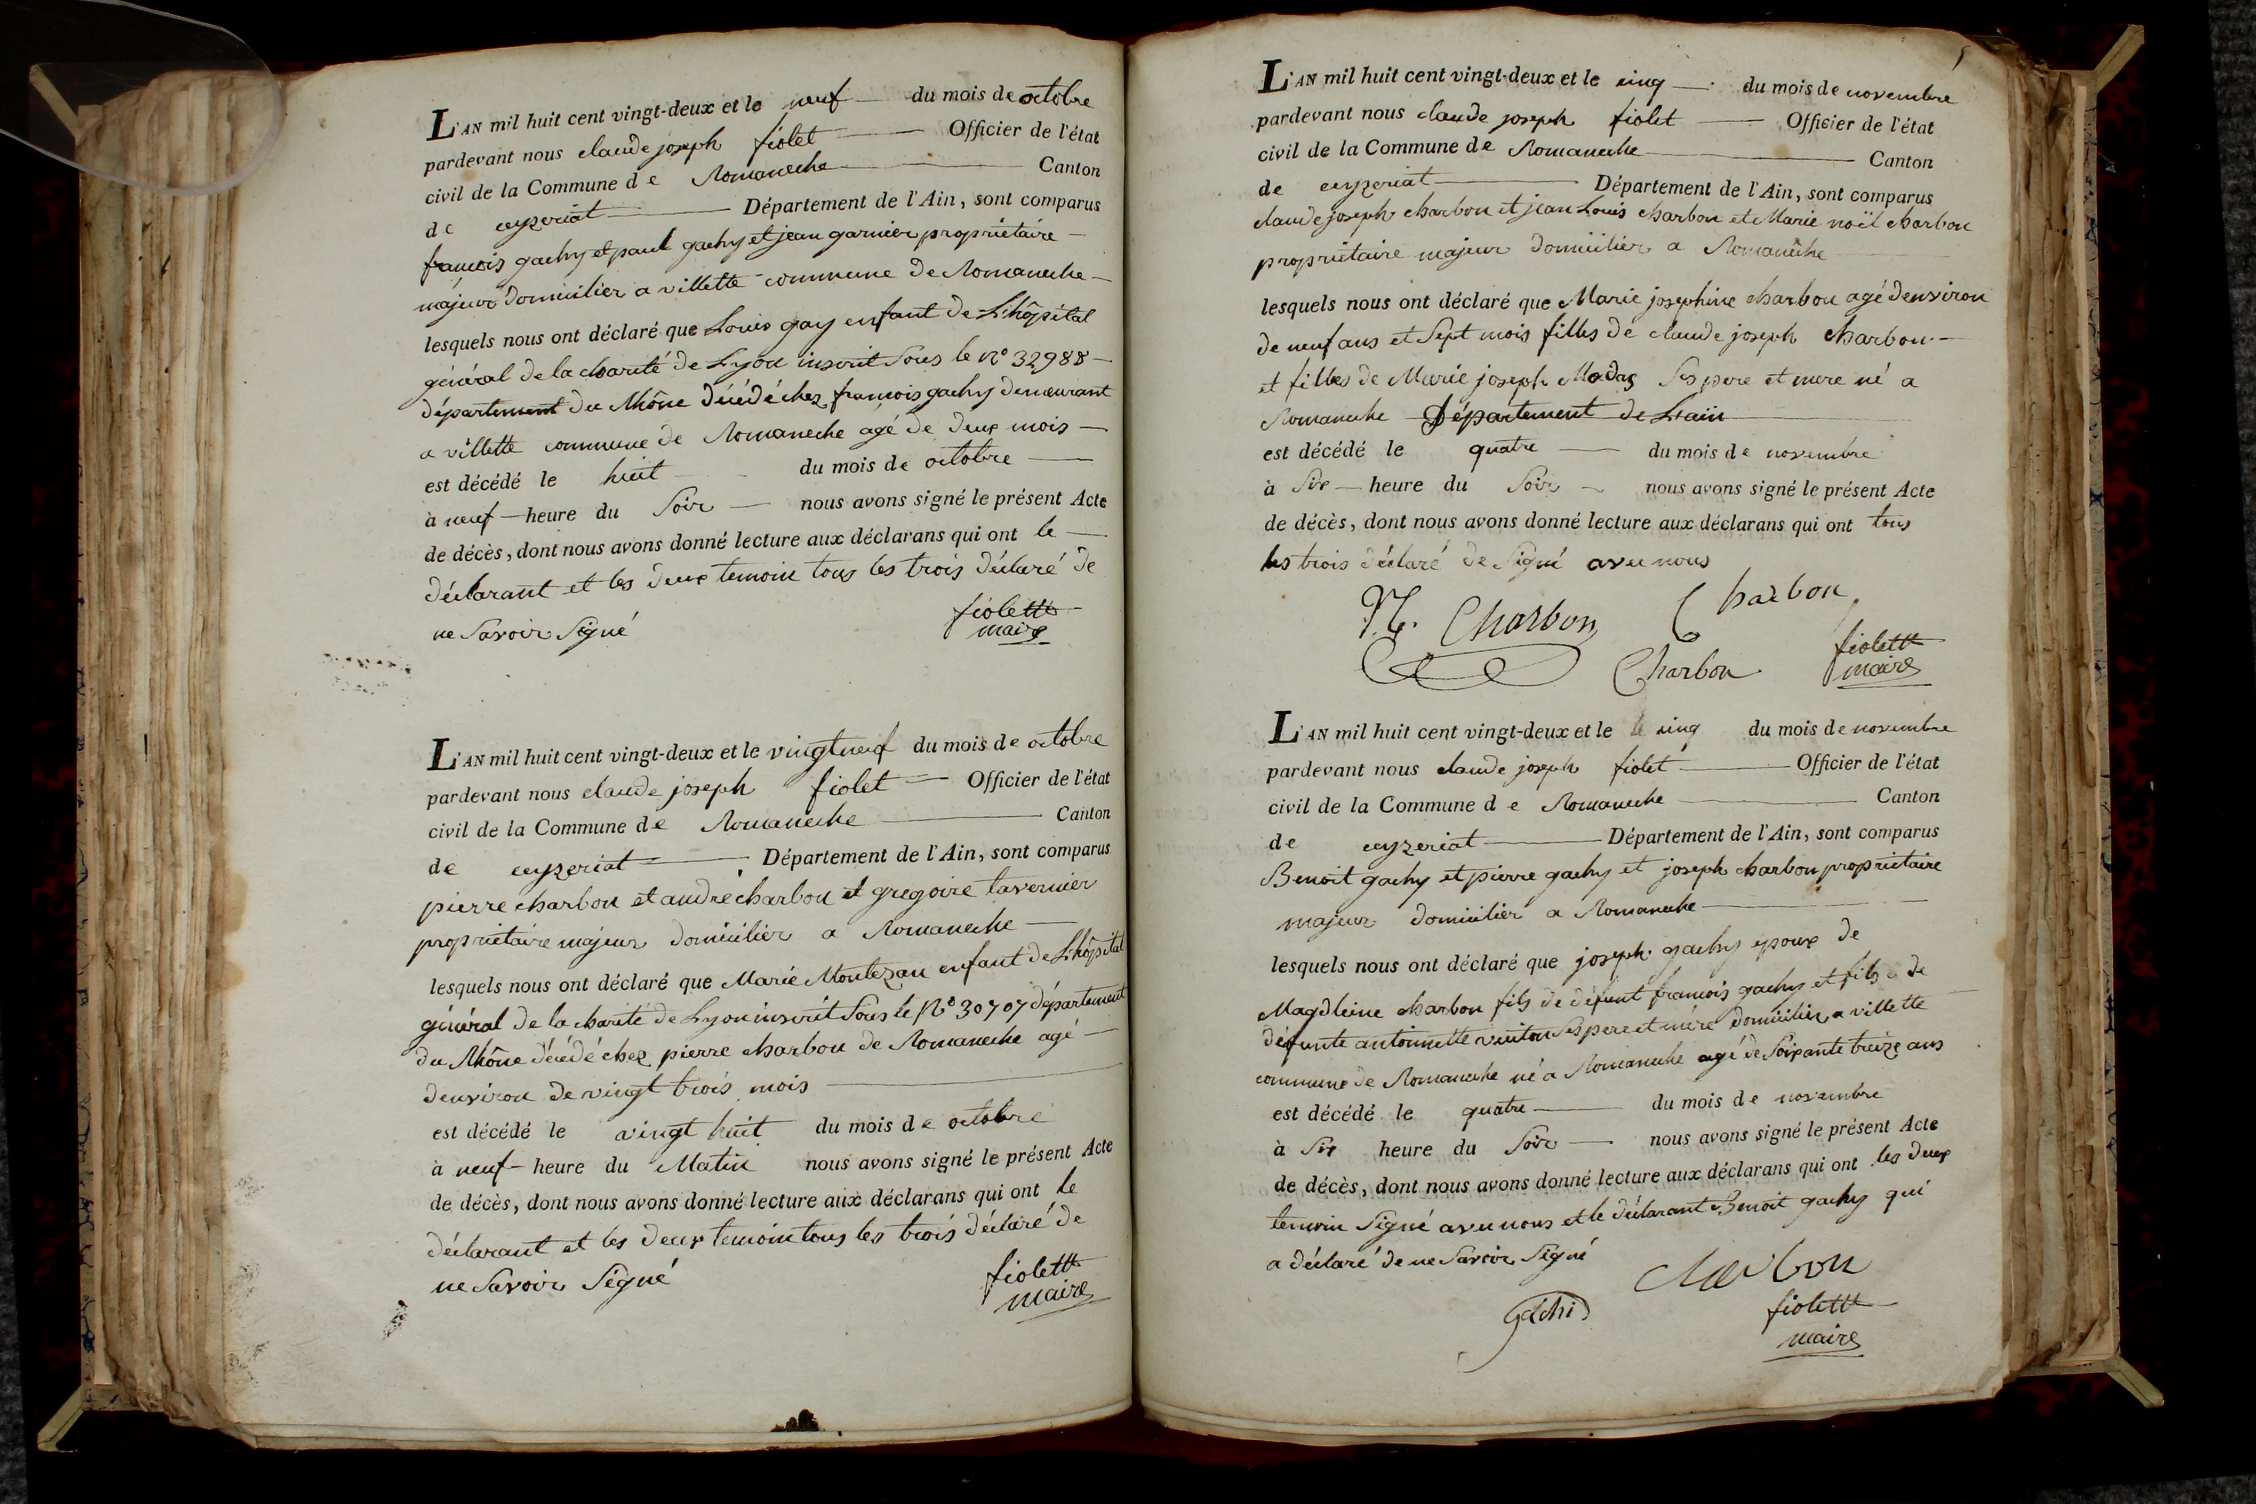 L'AN mil huit cent vingt-deux et le neuf du mois de octobre
pardevant nous claude joseph fiolet Officier de l'état
civil de la Commune de Romaneche Canton
de ceyzeriat Département de l'Ain, sont comparus
francois gachy et paul gachy et jean garnier propriétaire
majeur domicilier a villette commune de Romaneche
lesquels nous ont déclaré que Louis gay enfant de L'hôpital
général de la charité de Lyon inscrit Sous le N° 32988
département du Rhône décédé chez francois gachy demeurant
a villette commune de Romaneche agé de deux mois
est décédé le huit du mois de octobre
à neuf heure du Soir nous avons signé le présent Acte
de décès, dont nous avons donné lecture aux déclarans qui ont le
déclarant et les deux temoin tous les trois déclaré de
ne Savoir Signé
fiolet
maire
L'AN mil huit cent vingt-deux et le vingt neuf du mois de octobre
pardevant nous claude joseph fiolet Officier de l'état
civil de la Commune de Romaneche Canton
de ceyzeriat Département de l'Ain, sont comparus
pierre charbon et andré charbon et gregoire tavernier
propriétaire majeur domicilier a Romaneche
lesquels nous ont déclaré que Marie Montezan enfant de L'hôpital
général de la charité de Lyon inscrit Sous le N° 30707 département
du Rhône décédé chez pierre charbon de Romaneche agé
denviron de vingt trois mois
est décédé le vingt huit du mois de octobre
à neuf heure du Matin nous avons signé le présent Acte
de décès, dont nous avons donné lecture aux déclarans qui ont le
déclarant et les deux temoin tous les trois déclaré de
ne Savoir Signé
fiolet
maire
L'AN mil huit cent vingt-deux et le cinq du mois de novembre
pardevant nous claude joseph fiolet Officier de l'état
civil de la Commune de Romaneche Canton
de ceyzeriat Département de l'Ain, sont comparus
claude joseph charbon et jean Louis charbon et Marie noël charbon
propriétaire majeur domicilier a Romaneche
lesquels nous ont déclaré que Marie josephine charbon agé denviron
de neuf ans et Sept mois filles de claude joseph charbon
et filles de Marie joseph Ses pere et mere né a
Romaneche Département de Lain
est décédé le quatre du mois de novembre
à Six heure du Soir nous avons signé le présent Acte
de décès, dont nous avons donné lecture aux déclarans qui ont tous
les trois déclaré de Signé avec nous
Charbon
N. Charbon
fiolet
Charbon maire
L'AN mil huit cent vingt-deux et le le cinq du mois de novembre
pardevant nous claude joseph fiolet Officier de l'état
civil de la Commune de Romaneche Canton
de ceyzeriat Département de l'Ain, sont comparus
Benoit gachy et pierre gachy et joseph charbon propriétaire
majeur domicilier a Romaneche
lesquels nous ont déclaré que joseph gachy epoux de
Magdleine charbon fils de défunt francois gachy et fils de
défunte antoinette Ses pere et mére domicilier a villette
commune de Romaneche né a Romaneche agé de Soixante treize ans
est décédé le quatre du mois de novembre
à Six heure du Soir nous avons signé le présent Acte
de décès, dont nous avons donné lecture aux déclarans qui ont les deux
temoin Signé avec nous et le déclarant Benoit gachy qui
a déclaré de ne Savoir Signé
charbon
gachi fiolet
maire